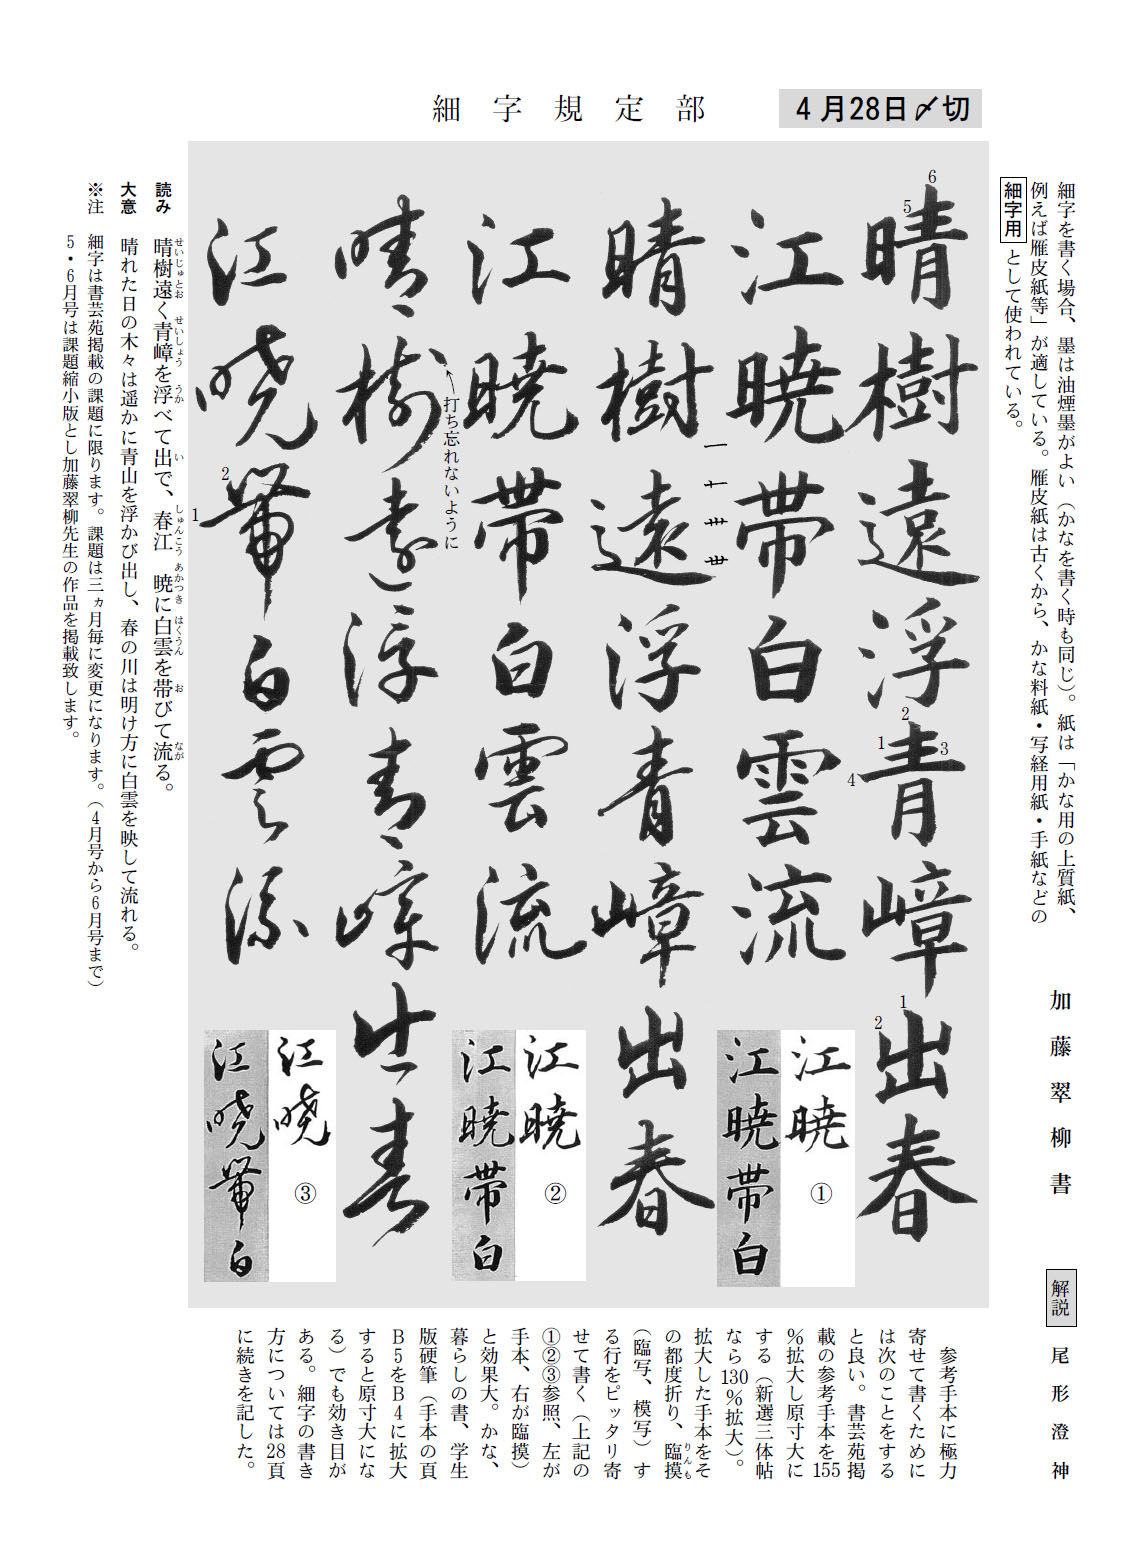 細字規定部
4月28日〆切
細字を書く場合、墨は油煙墨がよい（かなを書く時も同じ）。紙は「かな用の上質紙、
例えば雁皮紙等」が適している。雁皮紙は古くから、かな料紙・写経用紙・手紙などの
細字用として使われている。
加藤翠柳書
解説 尾形澄神
6
5
晴樹遠浮青嶂出春
2
1
3
4
1
2
江暁帯白雲流
一十卅丗
晴樹遠浮青嶂出春
江暁帯白雲流
打ち忘れないように
晴樹遠浮青嶂出春
江暁帯白雲流
2
1
江暁
①
江暁帯白
江暁
②
江暁帯白
江暁
③
江暁帯白
読み 晴樹遠く青嶂を浮べて出で、春江 暁に白雲を帯びて流る。
せいじゅとお せいしょう うか い しゅんこう あかつき はくうん お なが
大意 晴れた日の木々は遥かに青山を浮かび出し、春の川は明け方に白雲を映して流れる。
※注 細字は書芸苑掲載の課題に限ります。課題は三ヵ月毎に変更になります。（4月号から6月号まで）
5・6月号は課題縮小版とし加藤翠柳先生の作品を掲載致します。
参考手本に極力
寄せて書くために
は次のことをする
と良い。書芸苑掲
載の参考手本を155
％拡大し原寸大に
する（新選三体帖
なら130％拡大）。
拡大した手本をそ
の都度折り、臨摸
りんも
（臨写、模写）す
る行をピッタリ寄
せて書く（上記の
①②③参照、左が
手本、右が臨摸）
と効果大。かな、
暮らしの書、学生
版硬筆（手本の頁
B5をB4に拡大
すると原寸大にな
る）でも効き目が
ある。細字の書き
方については28頁
に続きを記した。